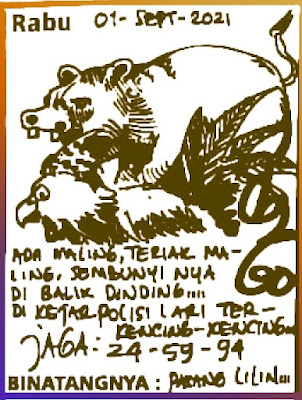 Rabu 01-SEPT-2021
ADA MALING, TERIAK MA-
LING, SEMBUNYI NYA
DI BALIK DINDING....
DI KEJAR POLISI LARI TER-
KENCING-KENCING...
JAGA: 24-59-94
BINATANGNYA : PASANG LILIN...